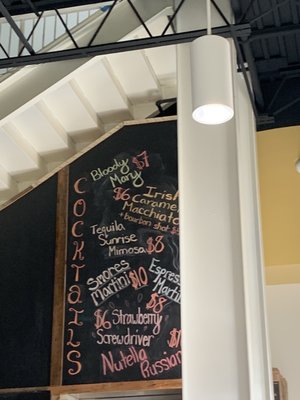 COCKTAILS
Bloody $7
Mary
$6 Irish
Caramel
Macchiato
+ bourbon shot $5
Tequila
Sunrise
Mimosa $8
Smores
Martini $10
Espr
Martini
$8
$6 Strawberry
Screwdriver
Nutella Russian